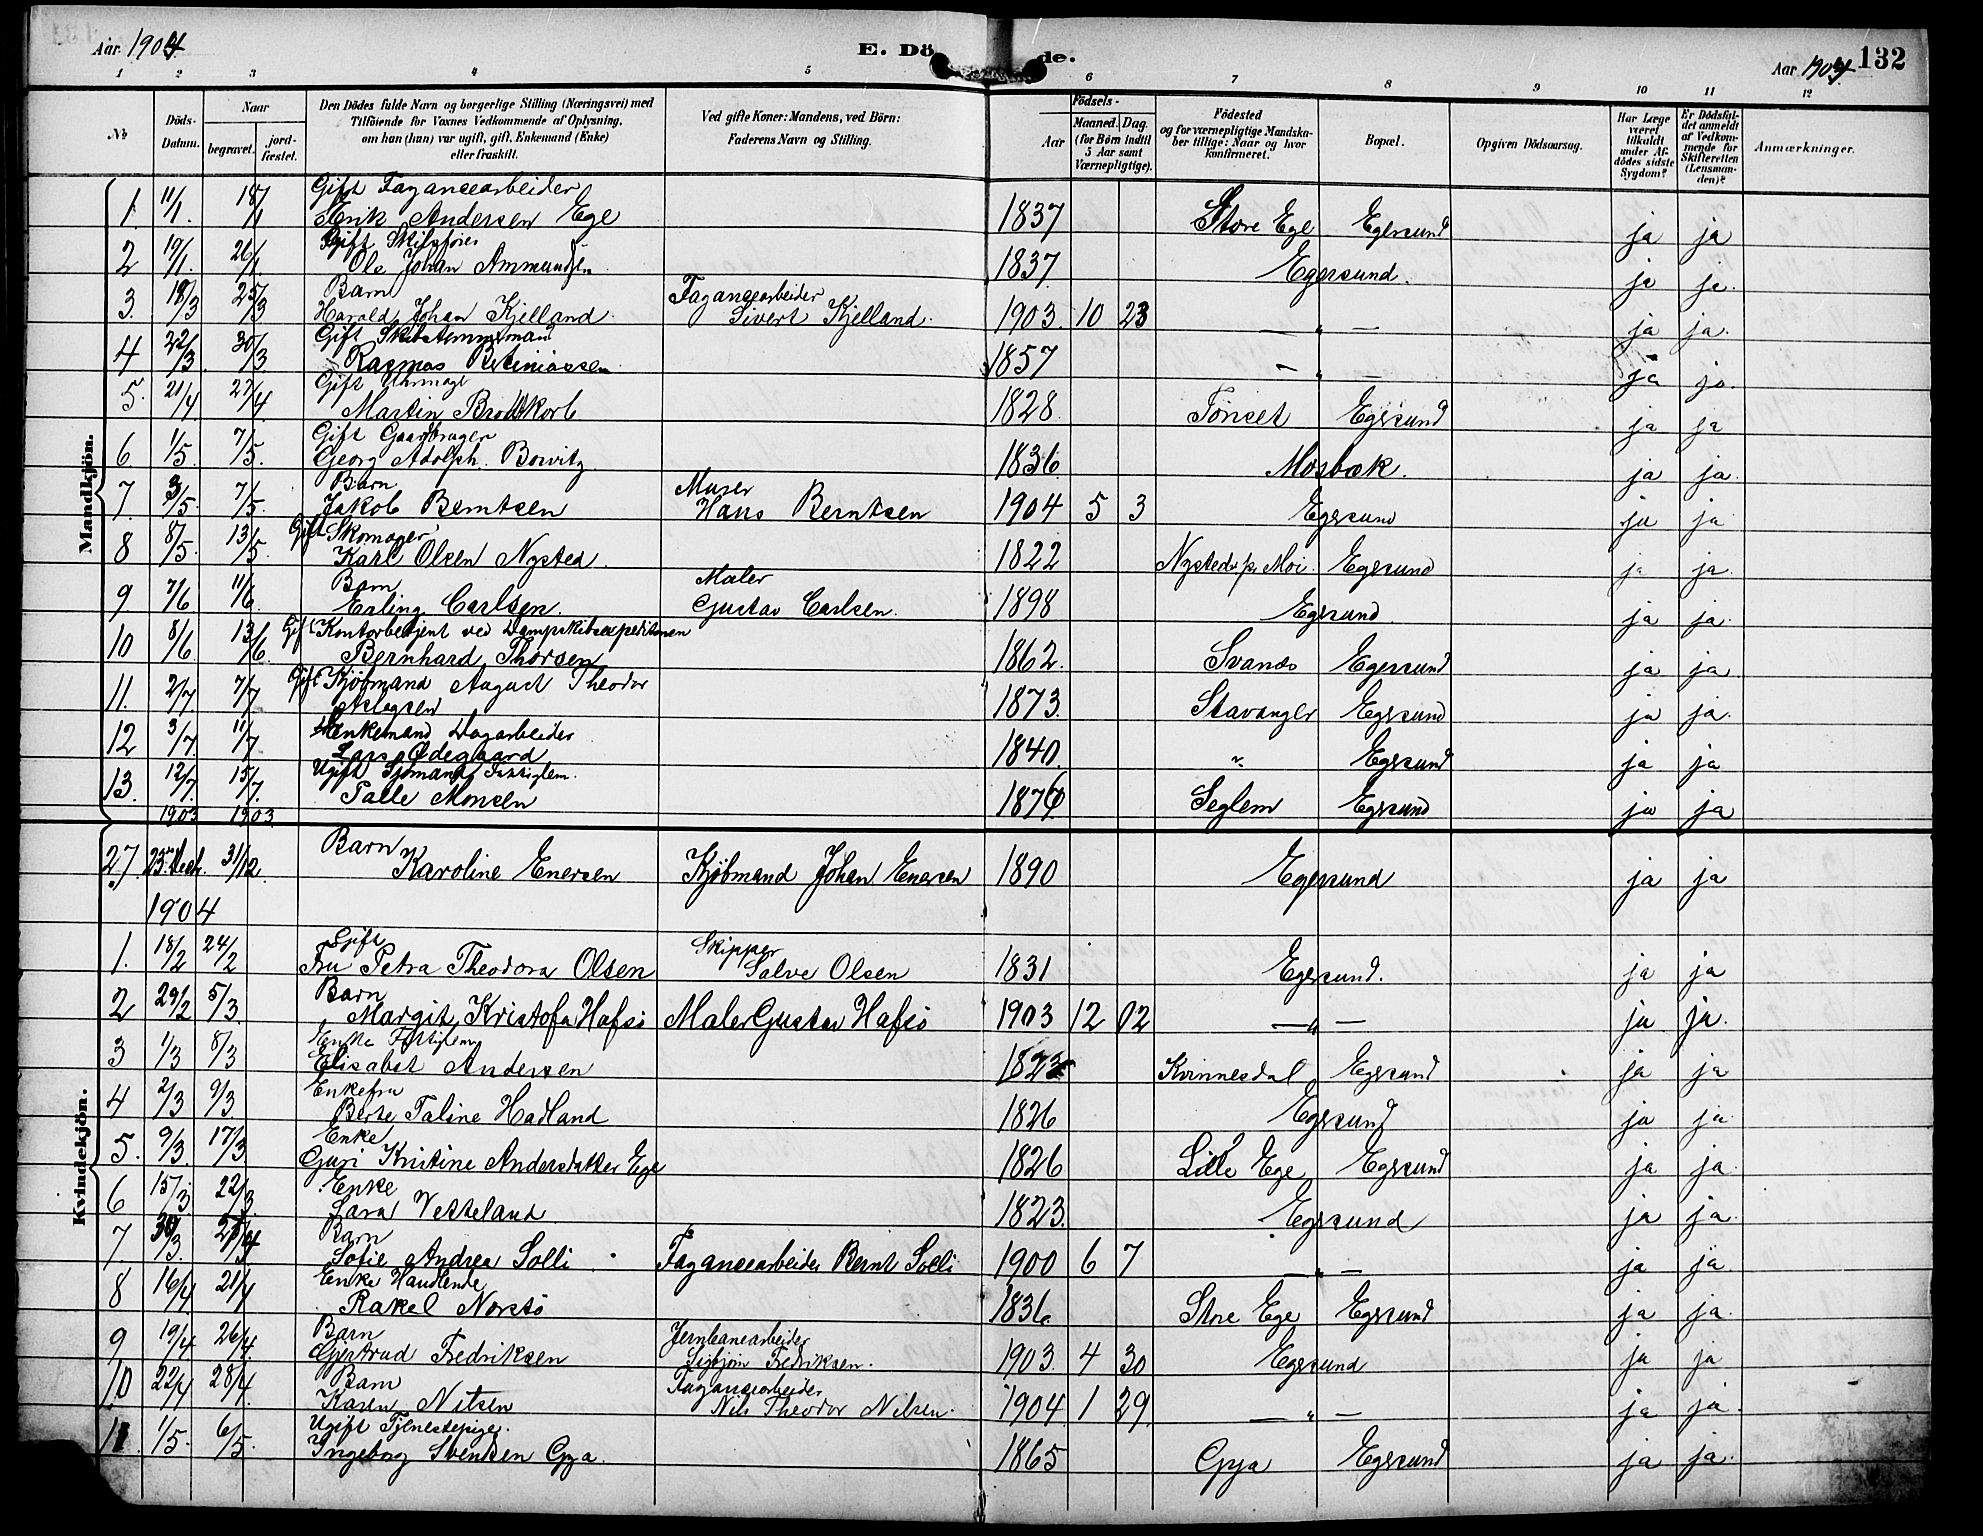 Aar 1904. E. Dö de. Aar 1904. 132
1 2 3 4 5 6 7 8 9 10 11 12
№ Döds-Datum. Naar begravet. jord-fæstet. Den Dödes fulde Navn og borgerlige Stilling (Næringsvei) med Tilföiende for Voxnes Vedkommende af Oplysning, om han (hun) var ugift, gift, Enkemand (Enke) eller fraskilt. Ved gifte Koner: Mandens, ved Börn: Faderens Navn og Stilling. Födsels- Aar Maaned. Dag. (for Börn indtil 5 Aar samt Værnepligtige). Födested og for værnepligtige Mandska-ber tillige: Naar og hvor konfirmeret. Bopæl. Opgiven Dödsaarsag. Har Læge været tilkaldt under Af-dödes sidste Sygdom? Er Dödsfal-det anmeldt af Vedkom-mende for Skifteretten (Lensman-den)? Anmærkninger.
Mandkjön.
Gift Fagancearbeider
1. 11/1. 18/1 Erik Andersen Ege 1837 Store Ege Egersund ja ja
Gift
2 19/1. 26/1. Ole Johan Ammundsen 1837. Egersund. ja ja.
Barn Fagancearbeider
3. 18/3 25/3 Harald Johan Kjelland. Sivert Kjelland. 1903. 10 23 — " — ja ja.
Gift Skibstømmermand
4 22/3. 30/3. Rasmus 1857 — " — ja ja.
Gift Uhrmager
5. 21/4 27/4 Martin Brodtkorb 1828. Tønset Egersund ja ja
Gift Gaardbruger
6 1/5. 7/5. Georg Adolph. 1836. Mosbæk. ja ja.
Barn Murer
7. 3/5. 7/5. Jakob Berntsen Hans Berntsen 1904 5 3 Egersund ja ja
Gift Skomager
8 8/5. 13/5. Karl Olsen Nysted. 1822 Nysted p. Moi. Egersund ja ja.
Barn Maler
9. 7/6 11/6. Erling Carlsen. Gustav Carlsen. 1898 Egersund. ja ja.
Gift Kontorbetjent ved Dampskibsexpeditionen
10 8/6. 13/6. Bernhard Thorsen 1862. Svanes Egersund ja ja
Gift Kjøbmand August Theodor
11. 2/7 7/7 Aslagsen 1873. Stavanger Egersund ja ja.
Enkemand Dagarbeider
12 3/7. 11/7 Lars Ødegaard 1840. " Egersund ja ja
Ugift Sjømand Fattiglem.
13. 12/7. 15/7. Palle Monsen 1876 Seglem Egersund ja ja
1903 1903
Kvindekjön.
Barn
27. 25. Decb. 31/12. Karoline Enersen Kjøbmand Johan Enersen 1890 Egersund ja ja
1904
Gift Skipper
1. 18/2 24/2 Fru Petra Theodora Olsen Salve Olsen 1831 Egersund. ja ja
Barn
2 29/2 5/3. Margit Kristofa Hafsø Maler Gustav Hafsø 1903 12 02 — " — ja ja.
Enke Fattiglem
3 1/3 8/3 Elisabet Andersen Kvinnesdal Egersund ja ja
Enkefru
4 2/3 9/3. Berte Taline Hadland 1826 Egersund ja ja.
Enke
5. 9/3. 17/3 Guri Kristine Andersdatter Ege 1826 Lille Ege Egersund ja ja.
Enke
6 15/3 22/3. Sara Vetteland 1823. Egersund ja ja.
Barn
7. 30/3. Sofie Andrea Solli Fagancearbeider Bernt Solli 1900 6 7 — " — ja ja.
Enke Handlende
8 16/4 21/4 Rakel Norstø 1836. Store Ege Egersund ja ja.
Barn Jernbanearbeider
9 19/4 26/4. Gjertrud Fredriksen Sigbjørn Fredriksen. 1903. 4 30 Egersund ja ja
Barn Fagancearbeider
10 22/4 28/4. Karen Nilsen Nils Theodor Nilsen. 1904 1 29. — " — ja ja.
Ugift Tjenestepige.
11. 1/5. 6/5. Ingeborg Svendsen Gya. 1865 Gya Egersund ja ja.